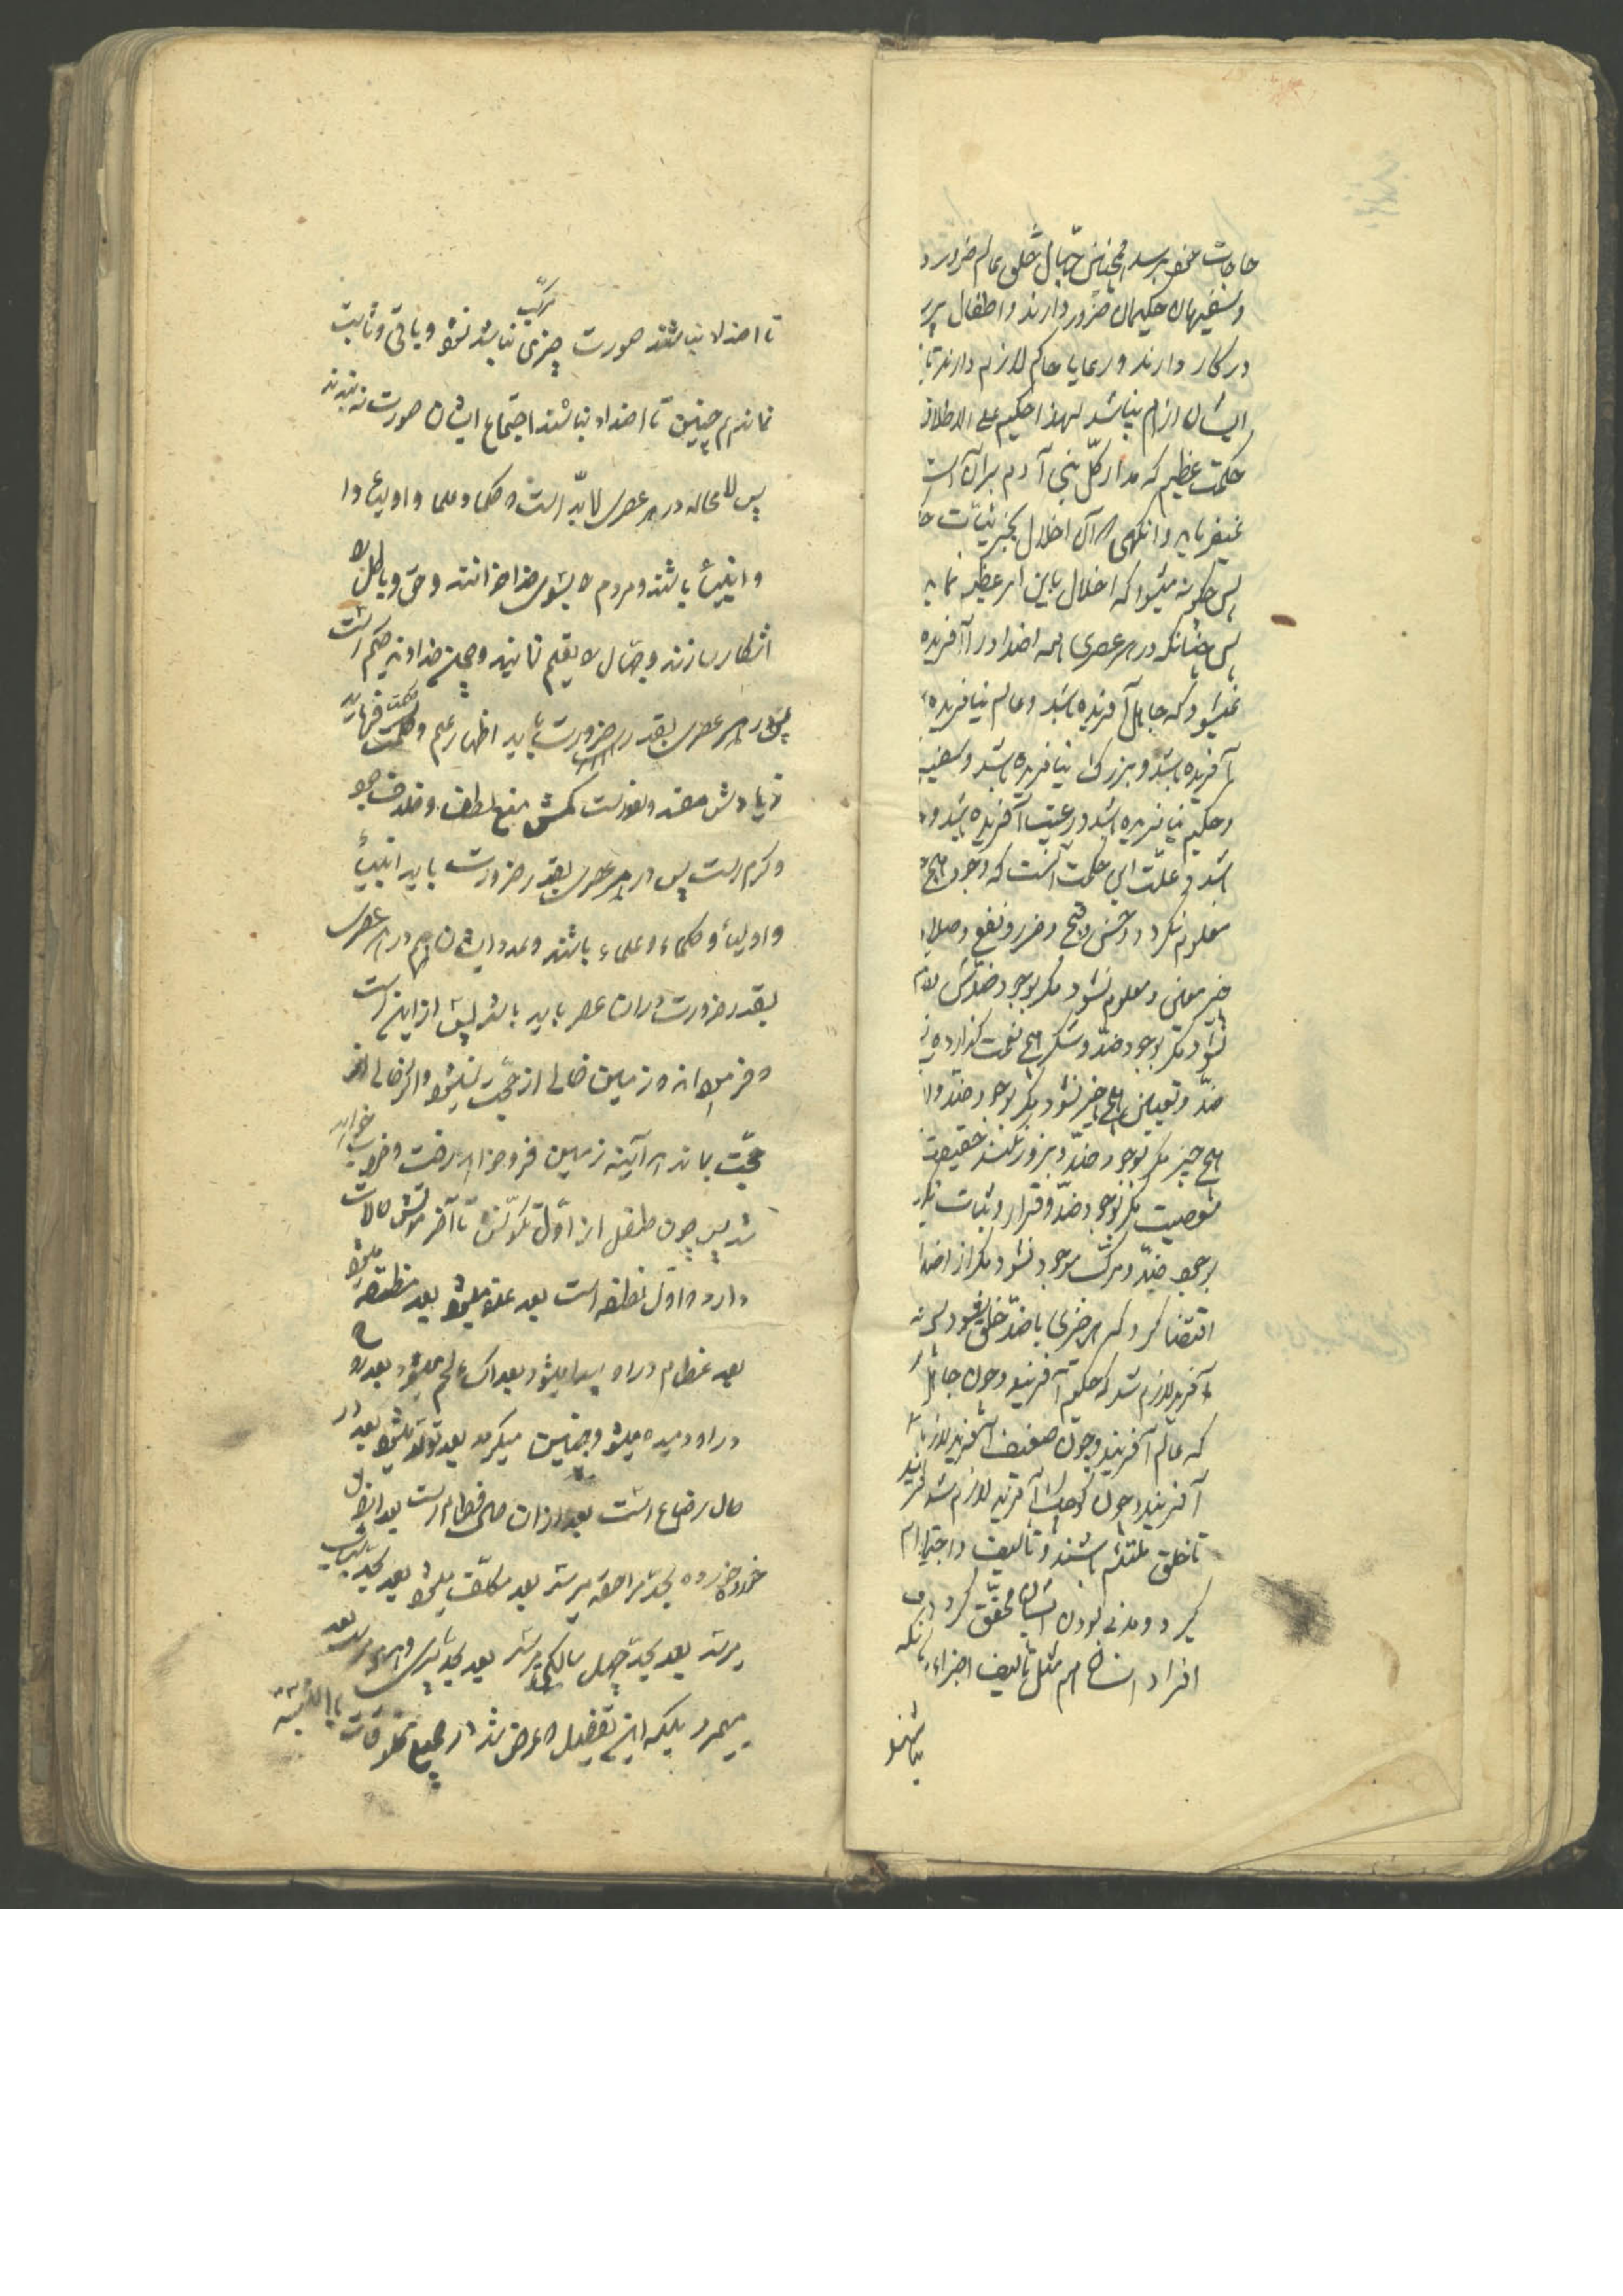 حاجات خود برسد همچنین جهال خلق عالم ضرور
و سفیهان حکیمان ضرور دارند و اطفال
در کار دارند و رعایا حاکم لازم دارند تا
ایشان ازهم نپاشد لهذا حکیم علی الاطلاق
حکمت عظیم که مدار کل بنی آدم بران است
نمیفرماید و آنگهی که آن اخلال بجزئیات
پس چگونه میشود که اخلال باین امر عظیم نماید
پس چنانکه در هر عصری همه اضداد را آفریده
نمیشود که جاهل آفریده باشد و عالم نیافریده
را آفریده باشد و بزرگ را نیافریده باشد و سفیه
و حکیم نیافریده باشد و رعیت آفریده باشد و
باشد و علت این حکمت آنست که وجود هیچ
معلوم نگردد و حسن و قبح و ضرر و نفع و صلاح
چیز معلوم نشود مگر بوجود ضدش
نشود مگر بوجود ضد و شکر هیچ نعمت گذارده
ضد و تعیین هیچ چیز نشود مگر بوجود ضد و
هیچ چیز مگر بوجود ضد و بروز نکند حقیقت
خصوصیت مگر بوجود ضد و قرار و ثبات نگیرد
بوجود ضد و مرکب موجود نشود مگر از اضداد
اقتضا کرد که هر چیزی با ضد خلق شود
آفرید لازم شد که حکیم آفریند و چون جاهل
که عالم آفریند و چون ضعیف آفرید لازم
آفریند و چون کوچک آفرید لازم شد
تا خلق ملتئم باشند و تألیف و اجتماع
گیرد و مدنی بودن ایشان محقق گردد
افراد انسان هم مثل تألیف اجزاء
نباشند
ترکیب
تا اضداد نباشند صورت چیزی نباشد نشود و باقی و ثابت
نماند همچنین تا اضداد نباشند اجتماع ایشان صورت نه بندد
پس لا محاله در هر عصری لابد است که حکما و علما و اولیاء
و انبیاء باشند و مردم را بسوی خدا خوانند و حق و باطل را
آشکار سازند و جهال را تعلیم نمایند و خداوند حکیم است
پس در هر عصر بقدر ضرورت باید اظهار علم و حکمت فرماید
زیادتش مفسد و لغو است کمش منع لطف و خلاف جود
و کرم است پس در هر عصر بقدر ضرورت باید انبیاء
و اولیاء و حکماء و علماء باشند و عدد ایشان هم در هر عصری
بقدر ضرورت در آن عصر باید باشد پس از این است
که فرموده اند زمین خالی از حجت نمیشود و اگر خالی از
حجت بماند هر آینه زمین فرو خواهد رفت و خراب خواهد
شد پس چون طفل از اول تکونش تا آخر موتش حالات
دارد که اول نطفه است بعد علقه میشود بعد مضغه میشود
بعد عظام در او پیدا میشود بعد اکساء لحم میشود بعد روح
در او دمیده میشود و جنین میگردد بعد تولد میشود بعد از
حال رضاع است بعد از آن حال فطام است بعد از آن
خورده خورده بحد مراهقه میرسد بعد مکلف میشود بعد بحد شباب
میرسد بعد بحد چهل سالگی میرسد بعد بحد پیری و هرم میرسد بعد
میمیرد بلکه این تفصیل که عرض شد در جمیع مخلوقات بالنسبه